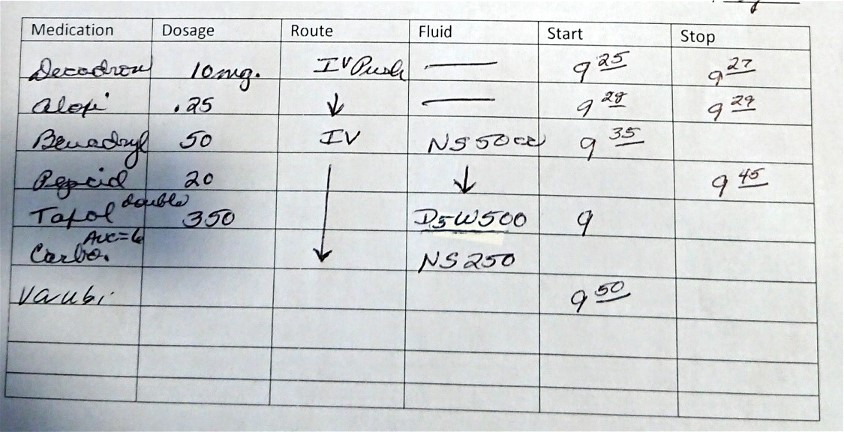 Medication Dosage Route Fluid Start Stop
Decadron 10mg. IV Push — 9 25 9 27
aloxi .25 ↓ — 9 28 9 29
Benadryl 50 IV NS 50cc 9 35
Pepcid 20 ↓ 9 45
Taxol double 350 D5W500 9
AUC=6
Carbo. NS 250
Varubi 9 50